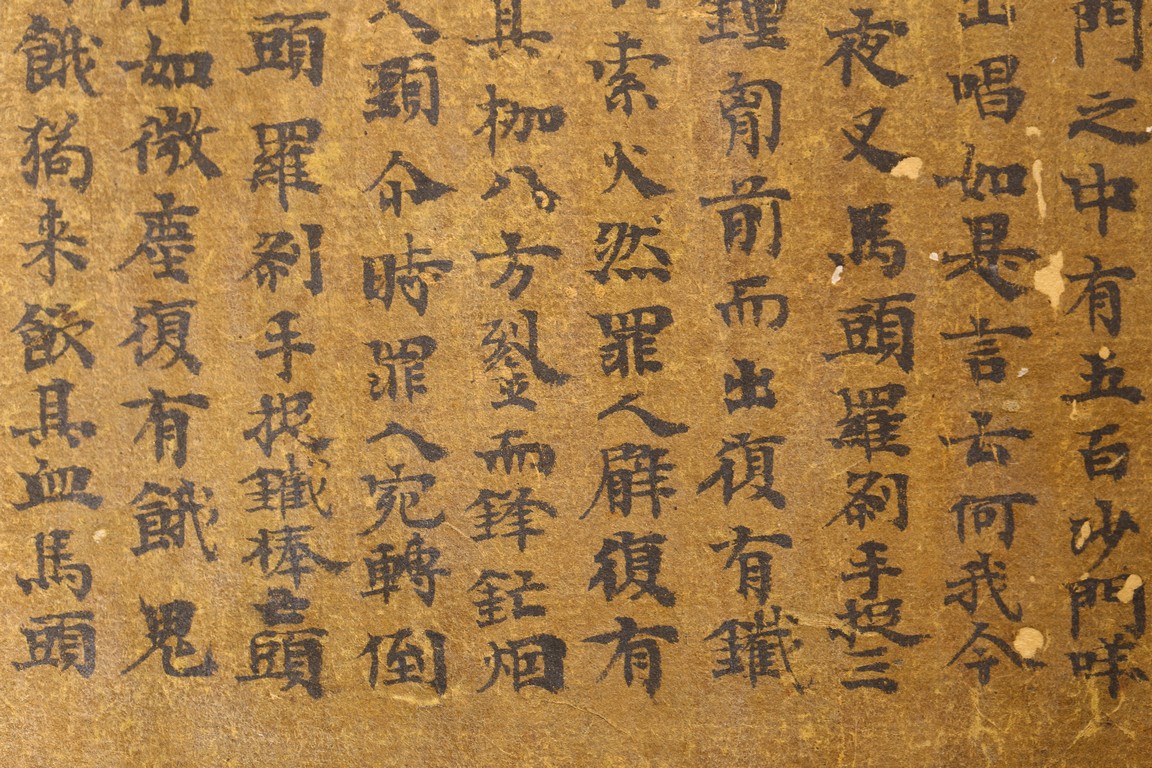 門之中有五百沙門咩
出唱如是言去何我今
夜叉馬頭羅刹手捉三
鍾匈前而出復有鐵
索火然罪人臂復有
其枷八方而鋒鋩烟
人頭尒時罪人宛轉倒
頭羅刹手捉鐵棒亡頭
如微塵復有餓鬼
餓猶来飲其血馬頭